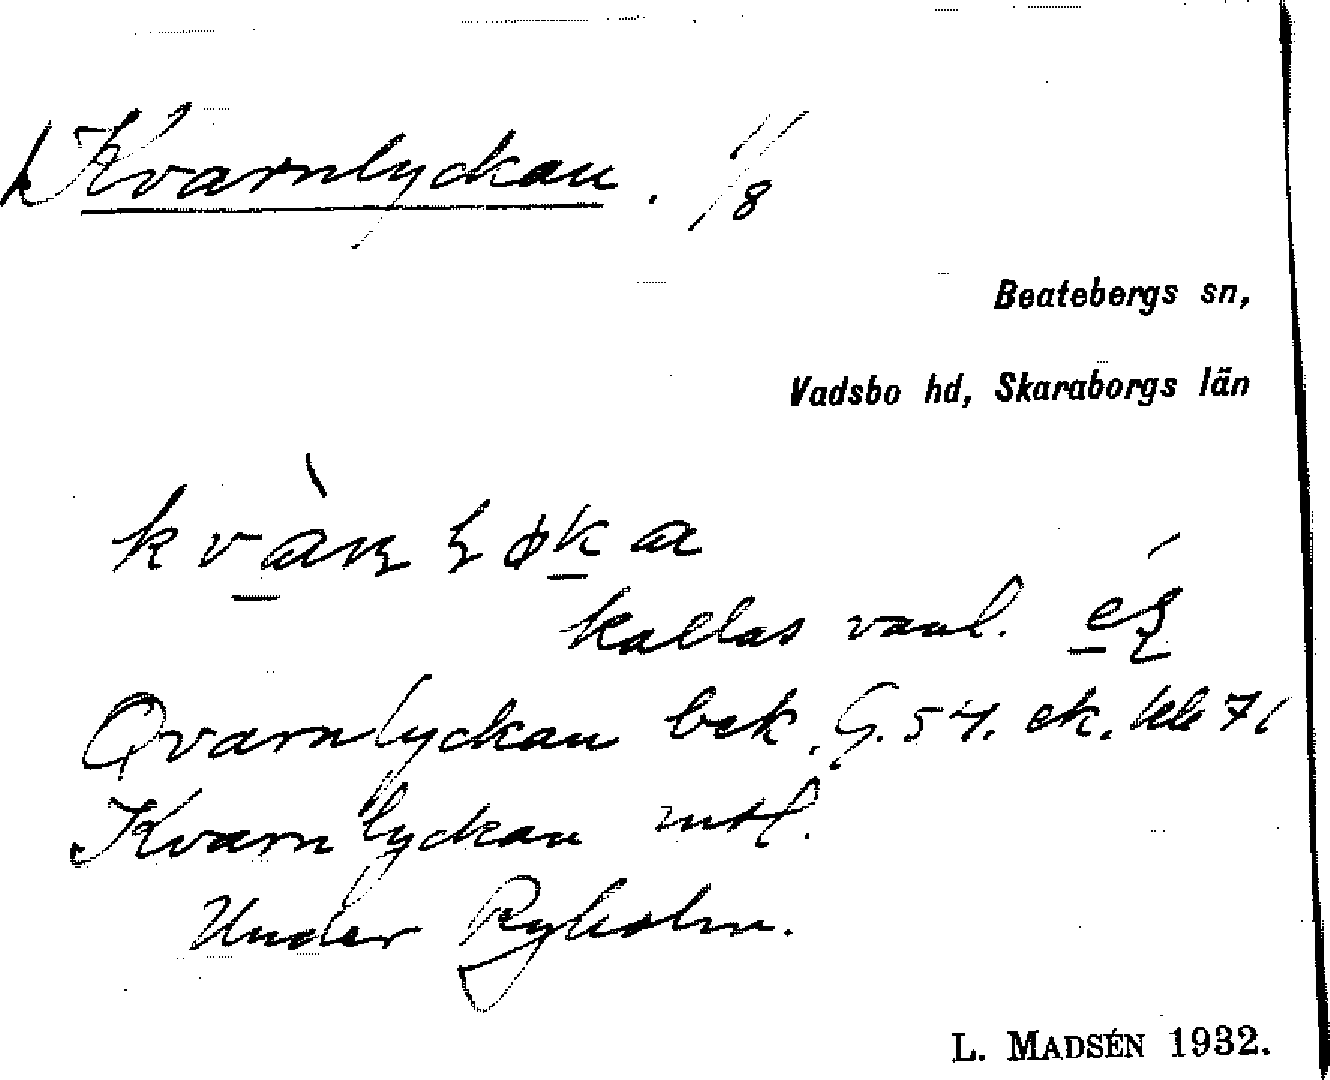 Kvarnlyckan. 11/8
Beatebergs sn,
Vadsbo hd, Skaraborgs län
kallas vanl.
Qvarnlyckan bek. G. 54. ek. kb 71
Kvarnlyckan mtl.
Under Ryholm.
L. MADSÉN 1932.